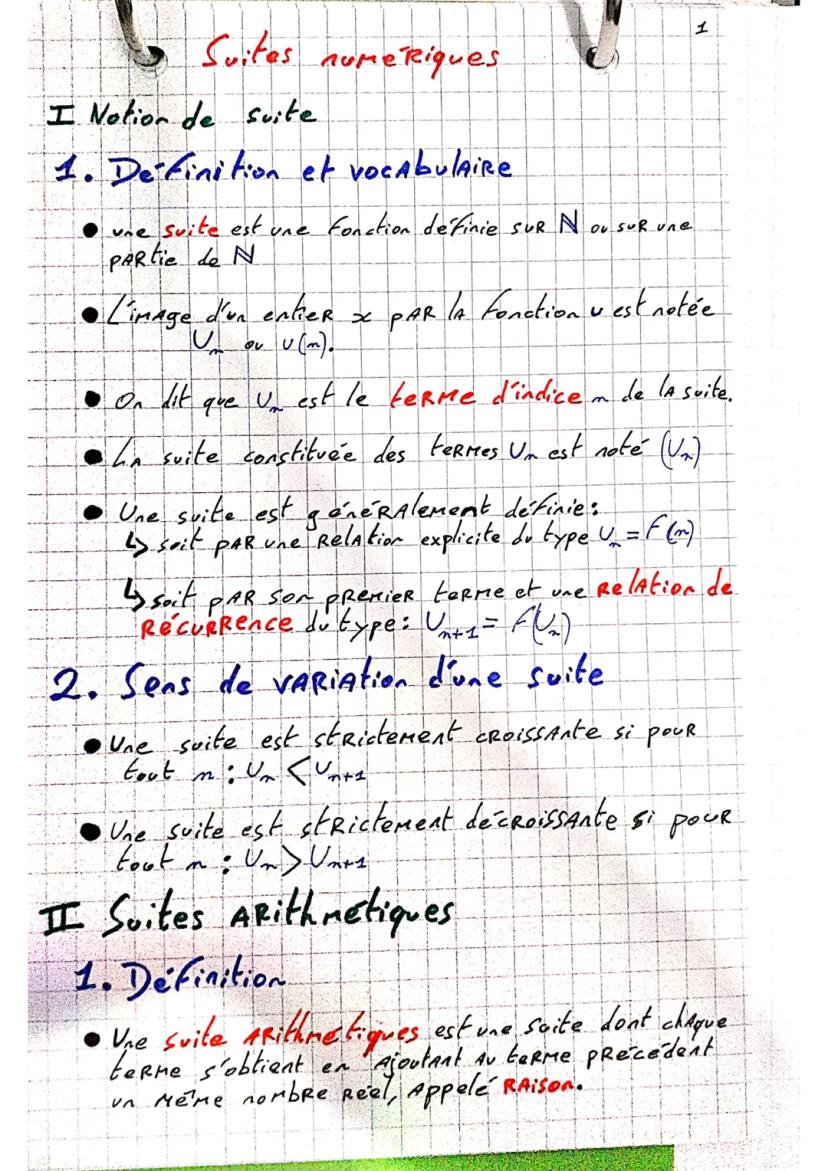 1
Suites numériques
I Notion de suite
1. Définition et vocabulaire
● une suite est une fonction définie sur ℕ ou sur une
partie de ℕ
● L'image d'un entier x par la fonction u est notée
Uₙ ou u(n).
● On dit que Uₙ est le terme d'indice n de la suite.
● La suite constituée des termes Uₙ est noté (Uₙ)
● Une suite est généralement définie :
↳ soit par une relation explicite du type Uₙ = f(n)
↳ soit par son premier terme et une relation de
récurrence du type : Uₙ₊₁ = f(Uₙ)
2. Sens de variation d'une suite
● Une suite est strictement croissante si pour
tout n : Uₙ < Uₙ₊₁
● Une suite est strictement décroissante si pour
tout n : Uₙ > Uₙ₊₁
II Suites arithmétiques
1. Définition
● Une suite arithmétiques est une suite dont chaque
terme s'obtient en ajoutant au terme précédent
un même nombre réel, appelé raison.